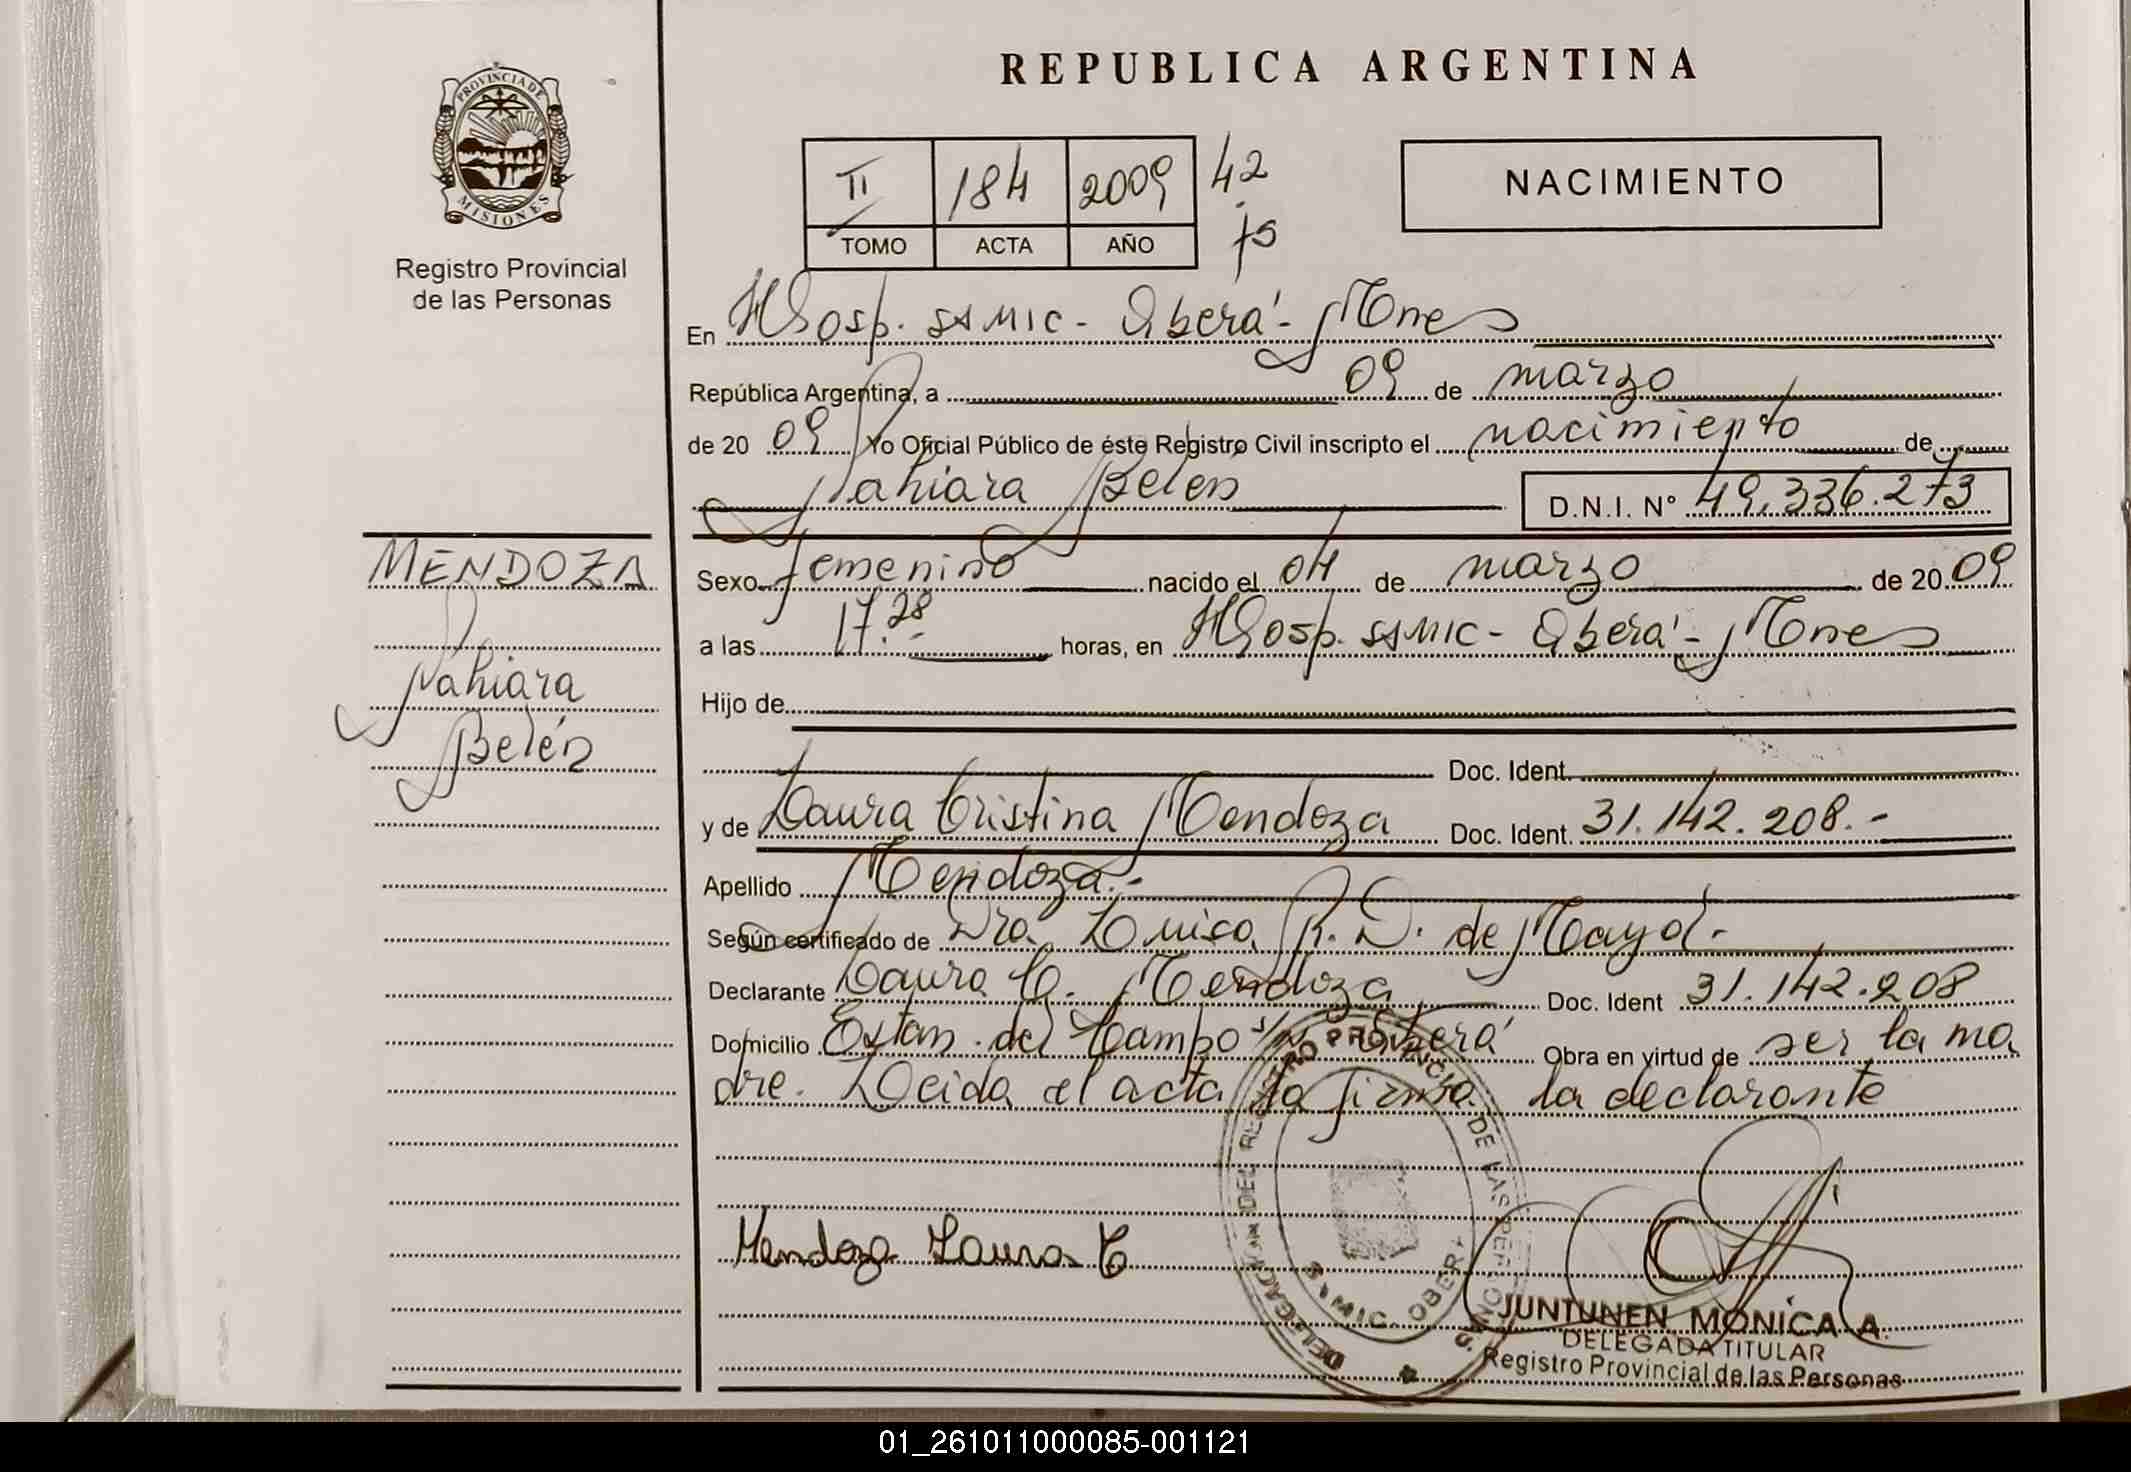 REPUBLICA ARGENTINA
PROVINCIA DE MISIONES
Registro Provincial
de las Personas
II 184 2009 42
TOMO ACTA AÑO
NACIMIENTO
En Hosp. SAMIC - Oberá - Mnes
República Argentina, a 09 de marzo
de 20 09 Yo Oficial Público de éste Registro Civil inscripto el nacimiento de
Nahiara Belén D.N.I. Nº 49.336.273
MENDOZA
Nahiara
Belén
Sexo femenino nacido el 04 de marzo de 20 09
a las 17.28 horas, en Hosp. SAMIC - Oberá - Mnes
Hijo de
Doc. Ident.
y de Laura Cristina Mendoza Doc. Ident. 31.142.208.-
Apellido Mendoza.-
Según certificado de Dra. Luisa R. D. de Mayol.-
Declarante Laura C. Mendoza Doc. Ident 31.142.208
Domicilio Estan. del Campo s/n Oberá Obra en virtud de ser la ma
dre. Leida el acta la firma la declarante
Mendoza Laura C
DELEGACION DEL REGISTRO PROVINCIAL DE LAS PERSONAS
SAMIC OBERA
JUNTUNEN MONICA A.
DELEGADA TITULAR
Registro Provincial de las Personas
01_261011000085-001121